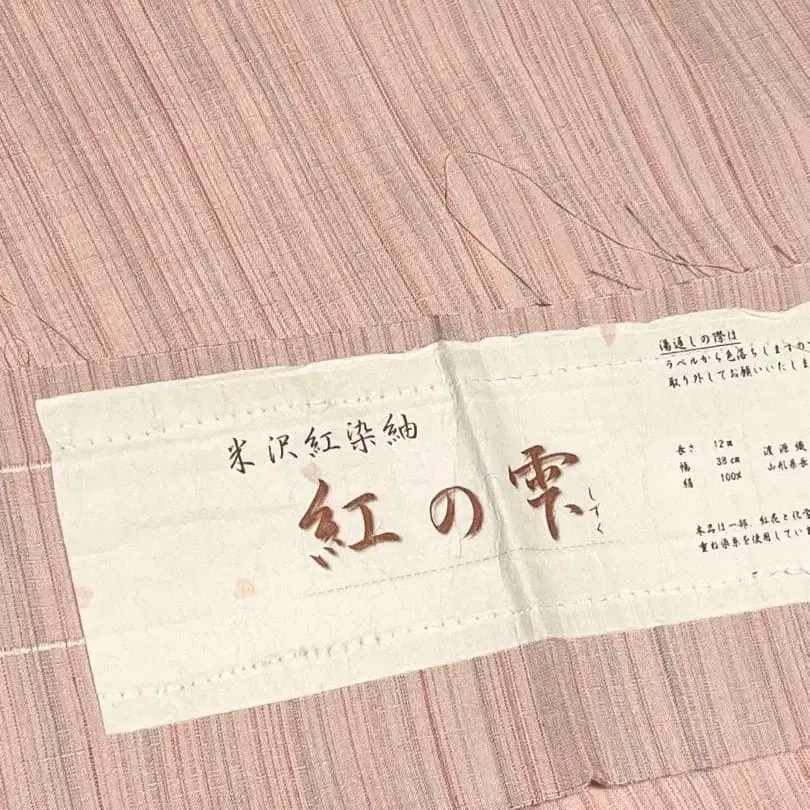 米沢紅染紬
紅の雫
しずく
湯通しの際は
ラベルから色落ちしますので
取り外してお願いいたしま
長さ 12m 渡源織
幅 38cm 山形県長
絹 100%
本品は一部、紅花と化
重ね染糸を使用してい